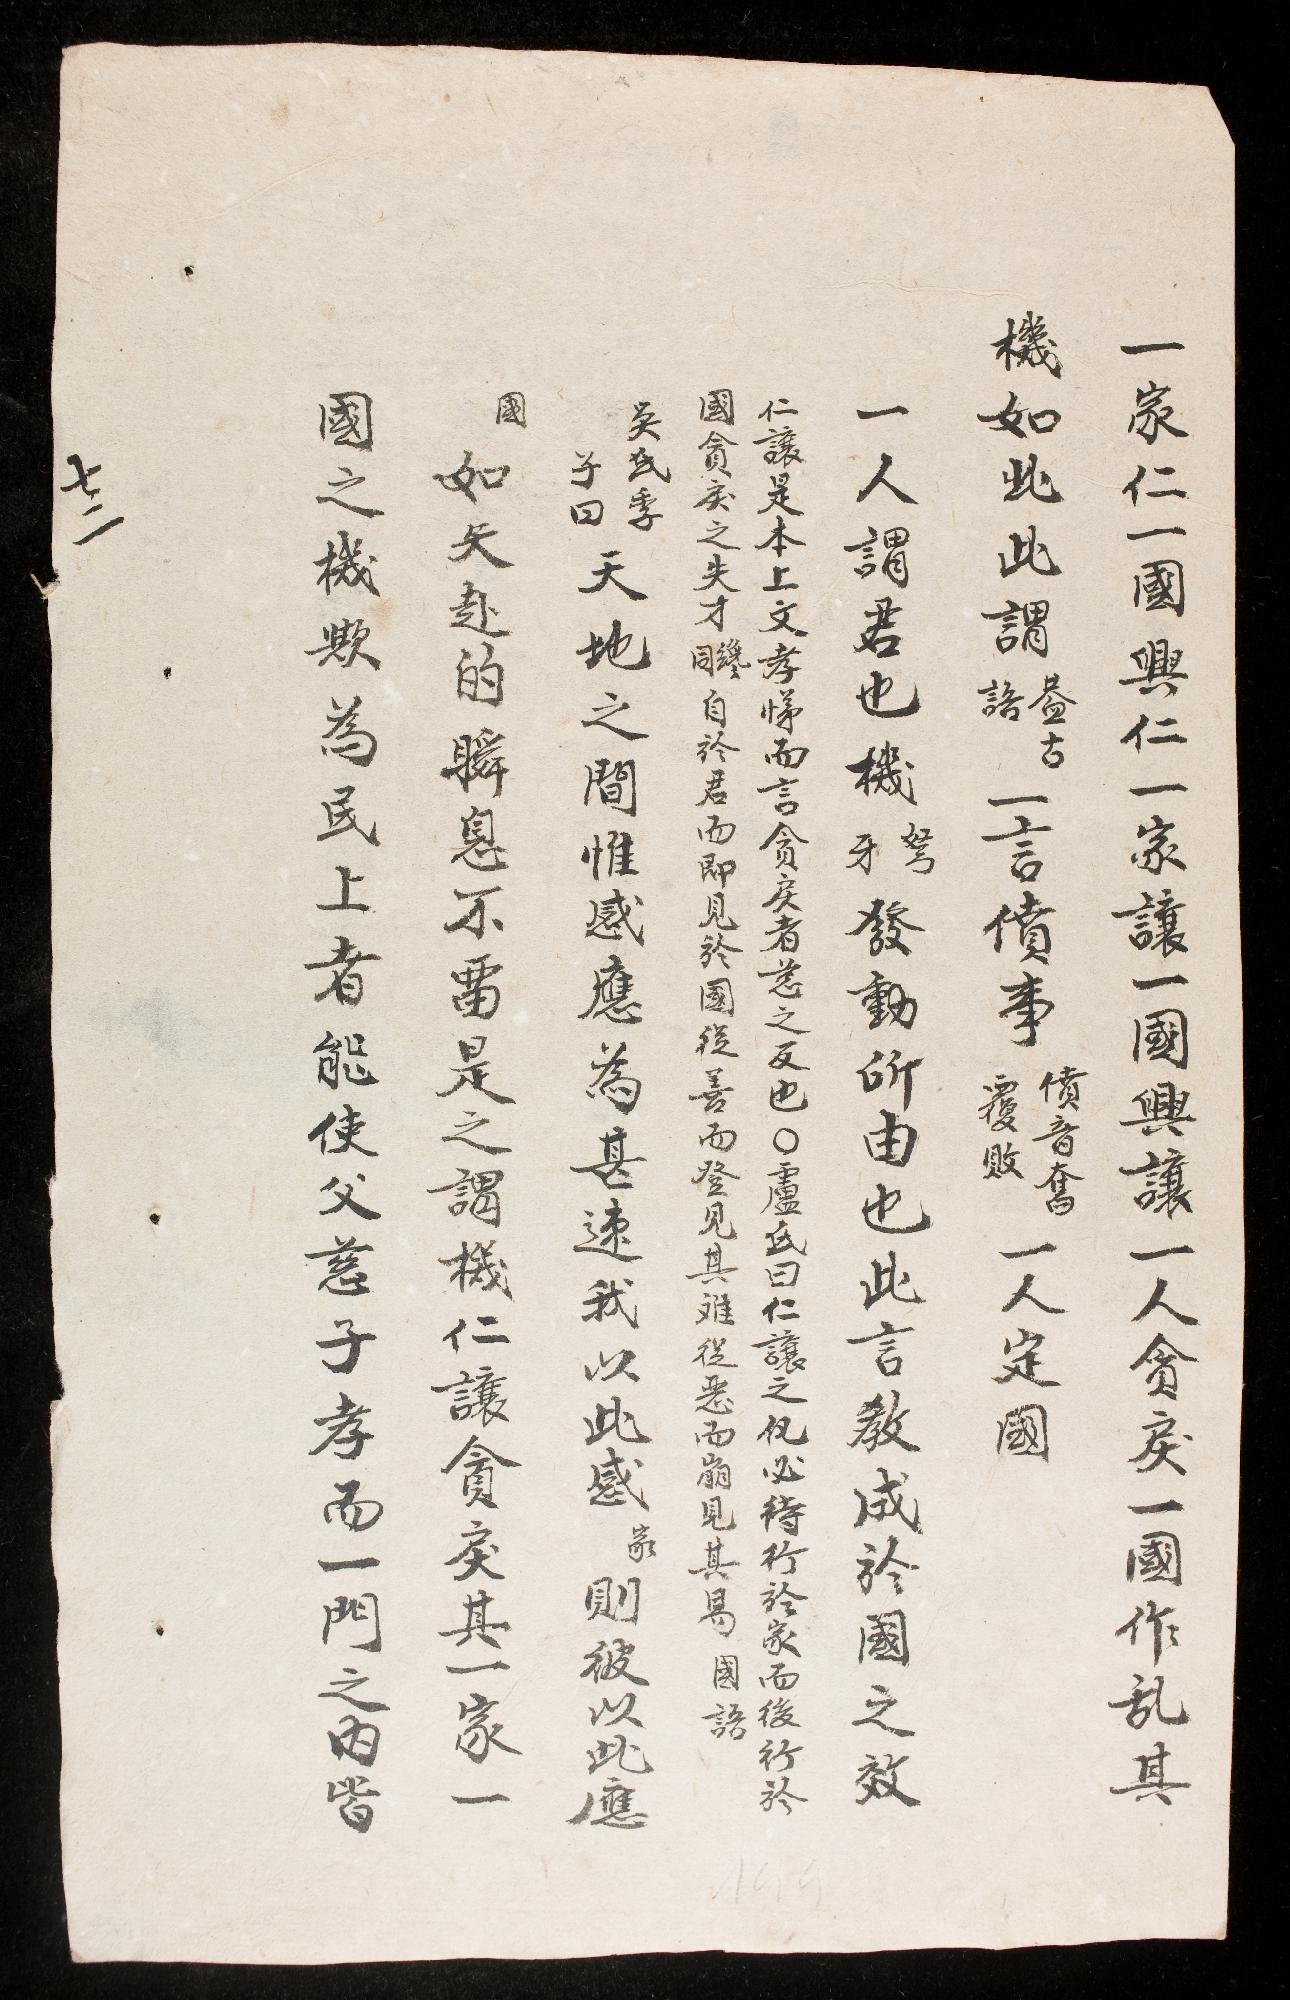 一家仁一國興仁一家讓一國興讓一人貪戾一國作乱其
機如此此謂
蓋古
語
一言僨事
僨音奮
覆敗
一人定國
一人謂君也機
弩
牙
發動所由也此言教成於國之效
仁讓是本上文孝悌而言貪戾者慈之反也○盧氏曰仁讓之化必待行於家而後行於
國貪戾之失才
纔
同
自於君而即見於國從善而登見其难從悪而崩見其易
國語
吳氏季
子曰
天地之間惟感應為甚速我以此感
家
則彼以此應
國
如矢赴的瞬息不畱是之謂機仁讓貪戾其一家一
國之機歟為民上者能使父慈子孝而一門之內皆
七二